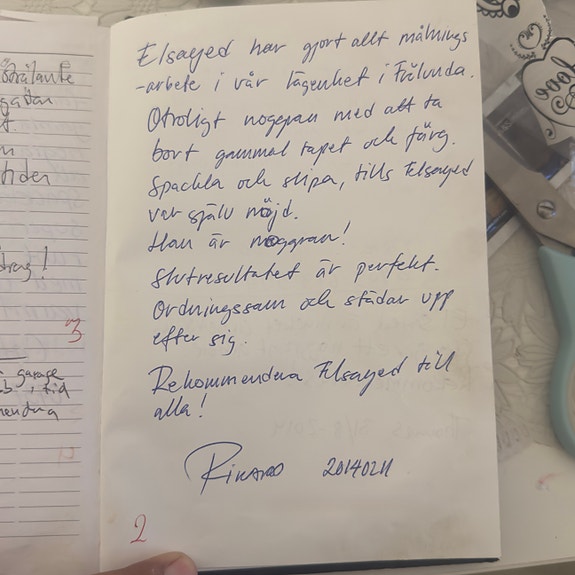 Elsayed har gjort allt målnings
-arbete i vår lägenhet i Frölunda.
Otroligt noggran med att ta
bort gammal tapet och färg.
Spackla och slipa, tills Elsayed
var själv nöjd.
Han är noggran!
Slutresultatet är perfekt.
Ordningssam och städar upp
efter sig.
Rekommendera Elsayed till
alla!
Rikard 20140211
2
3
garage
love